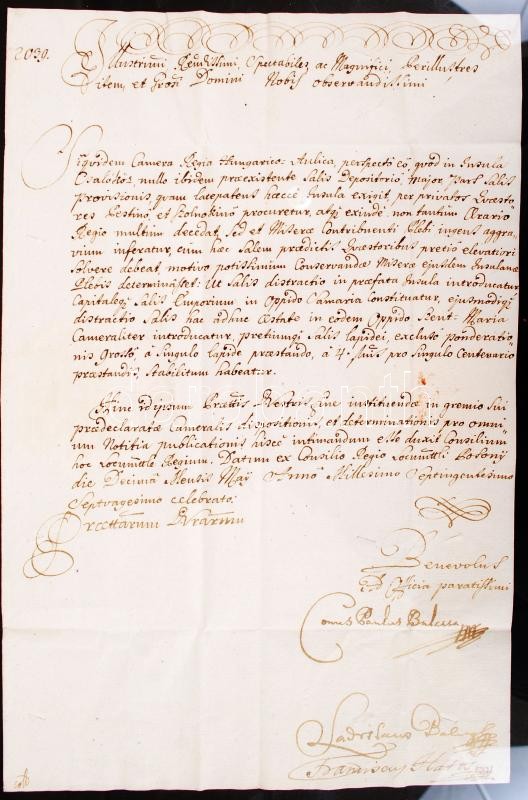 2030.
Illustrissimi Rendissimi, Spectabiles, ac Magnifici, Perillustres
item, et Grosi Domini Nobis observandissimi
Siquidem Camera Regia Hungarico-Aulica, perspecto eo, quod in Insula
Csalokoz, nullo ibidem praeexistente Salis Depositorio, major pars Salis
Provisionis, quam laepatens haecce Insula exigit, per privatos Quaesto
res Pestino, et Szolnokino procuretur, atq exinde non tantum Aerario
Regio multum decedat, sed et Miserae Contribuenti Plebi ingens aggra
vium inferatur, cum haec Salem praedictis Quaestoribus pretio elevatiori
solvere debeat, motivo potissimum Conservandae Miserae ejusdem Insulanae
Plebis determinasset: Ut Salis distractio in praefata Insula introducatur,
Capitaleq Salis Emporium in Oppido Samaria Constituatur, ejusmodiq
distractio Salis hac adhuc aestate in eodem Oppido Szent-Maria
Cameraliter introducatur, pretiumq Salis lapidei, excluso ponderatio
nis Grosso, a singulo lapide praestando, a 4. pro Singulo Centenario
praestandis Stabilitum habeatur.
Hinc idipsum Praettis Vestris, ine instituendae in gremio sui
praedeclaratae Cameralis dispositionis, et determinationis pro omni
um Notitia publicationis hisce intimandum esse duxit Consilium
hoc locumtale Regium. Datum ex Consilio Regio locumttli Posonij
die Decima Mensis Maij Anno Millesimo Septingentesimo
Septuagesimo celebrato.
Praettarum Vrarum
Benevolus
ad Officia paratissimi
Comes Paulus Balassa
Ladislaus Balogh
Franciscus